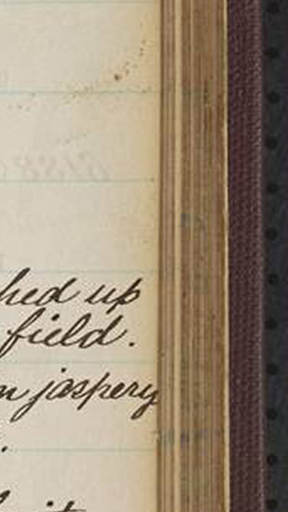 hed up
field.
n jaspery
.